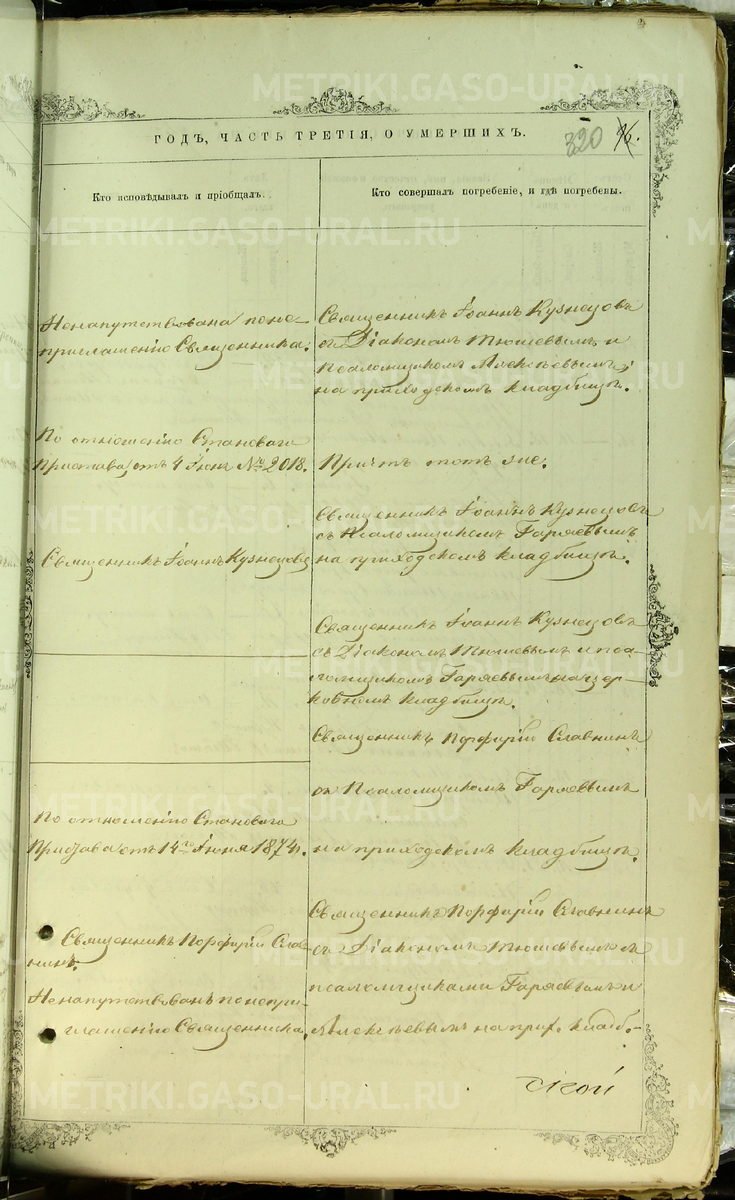 METRIKI.GASO-URAL.RU
ГОДЪ, ЧАСТЬ ТРЕТІЯ, О УМЕРШИХЪ.
320
Кто исповѣдывалъ и пріобщалъ.
Кто совершалъ погребеніе, и гдѣ погребены.
Ненапутствована по не-
приглашенію Священника.
Священникъ Іоаннъ Кузнецовъ
съ Діакономъ Тюшевымъ и
Псаломщикомъ Алексѣевымъ,
на приходскомъ кладбищѣ.
По отношенію Становаго
Пристава отъ 4 Іюня № 2018.
Причтъ тотъ же.
Священникъ Іоаннъ Кузнецовъ
Священникъ Іоаннъ Кузнецовъ
съ Псаломщикомъ Гаряевымъ
на приходскомъ кладбищѣ.
Священникъ Іоаннъ Кузнецовъ
съ Діакономъ Тюшевымъ и пса-
ломщикомъ Гаряевымъ на цер-
ковномъ кладбищѣ.
Священникъ Порфирій Славнинъ
съ Псаломщикомъ Гаряевымъ
на приходскомъ кладбищѣ.
По отношенію Становаго
Пристава отъ 14го Іюня 1874 г.
Священникъ Порфирій Слав-
нинъ.
Священникъ Порфирій Славнинъ
съ Діакономъ Тюшевымъ съ
псаломщиками Гаряевымъ и
Алексѣевымъ на прих. кладб.
Ненапутствованъ по непри-
глашенію Священника.